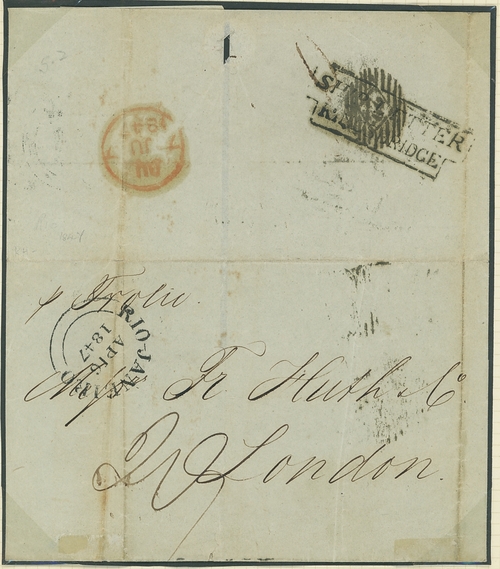 SHIP LETTER
KINGSBRIDGE
p Frolic.
RIO-JANEIRO
AP16
1847
Messrs Fr Huth & Co
London.